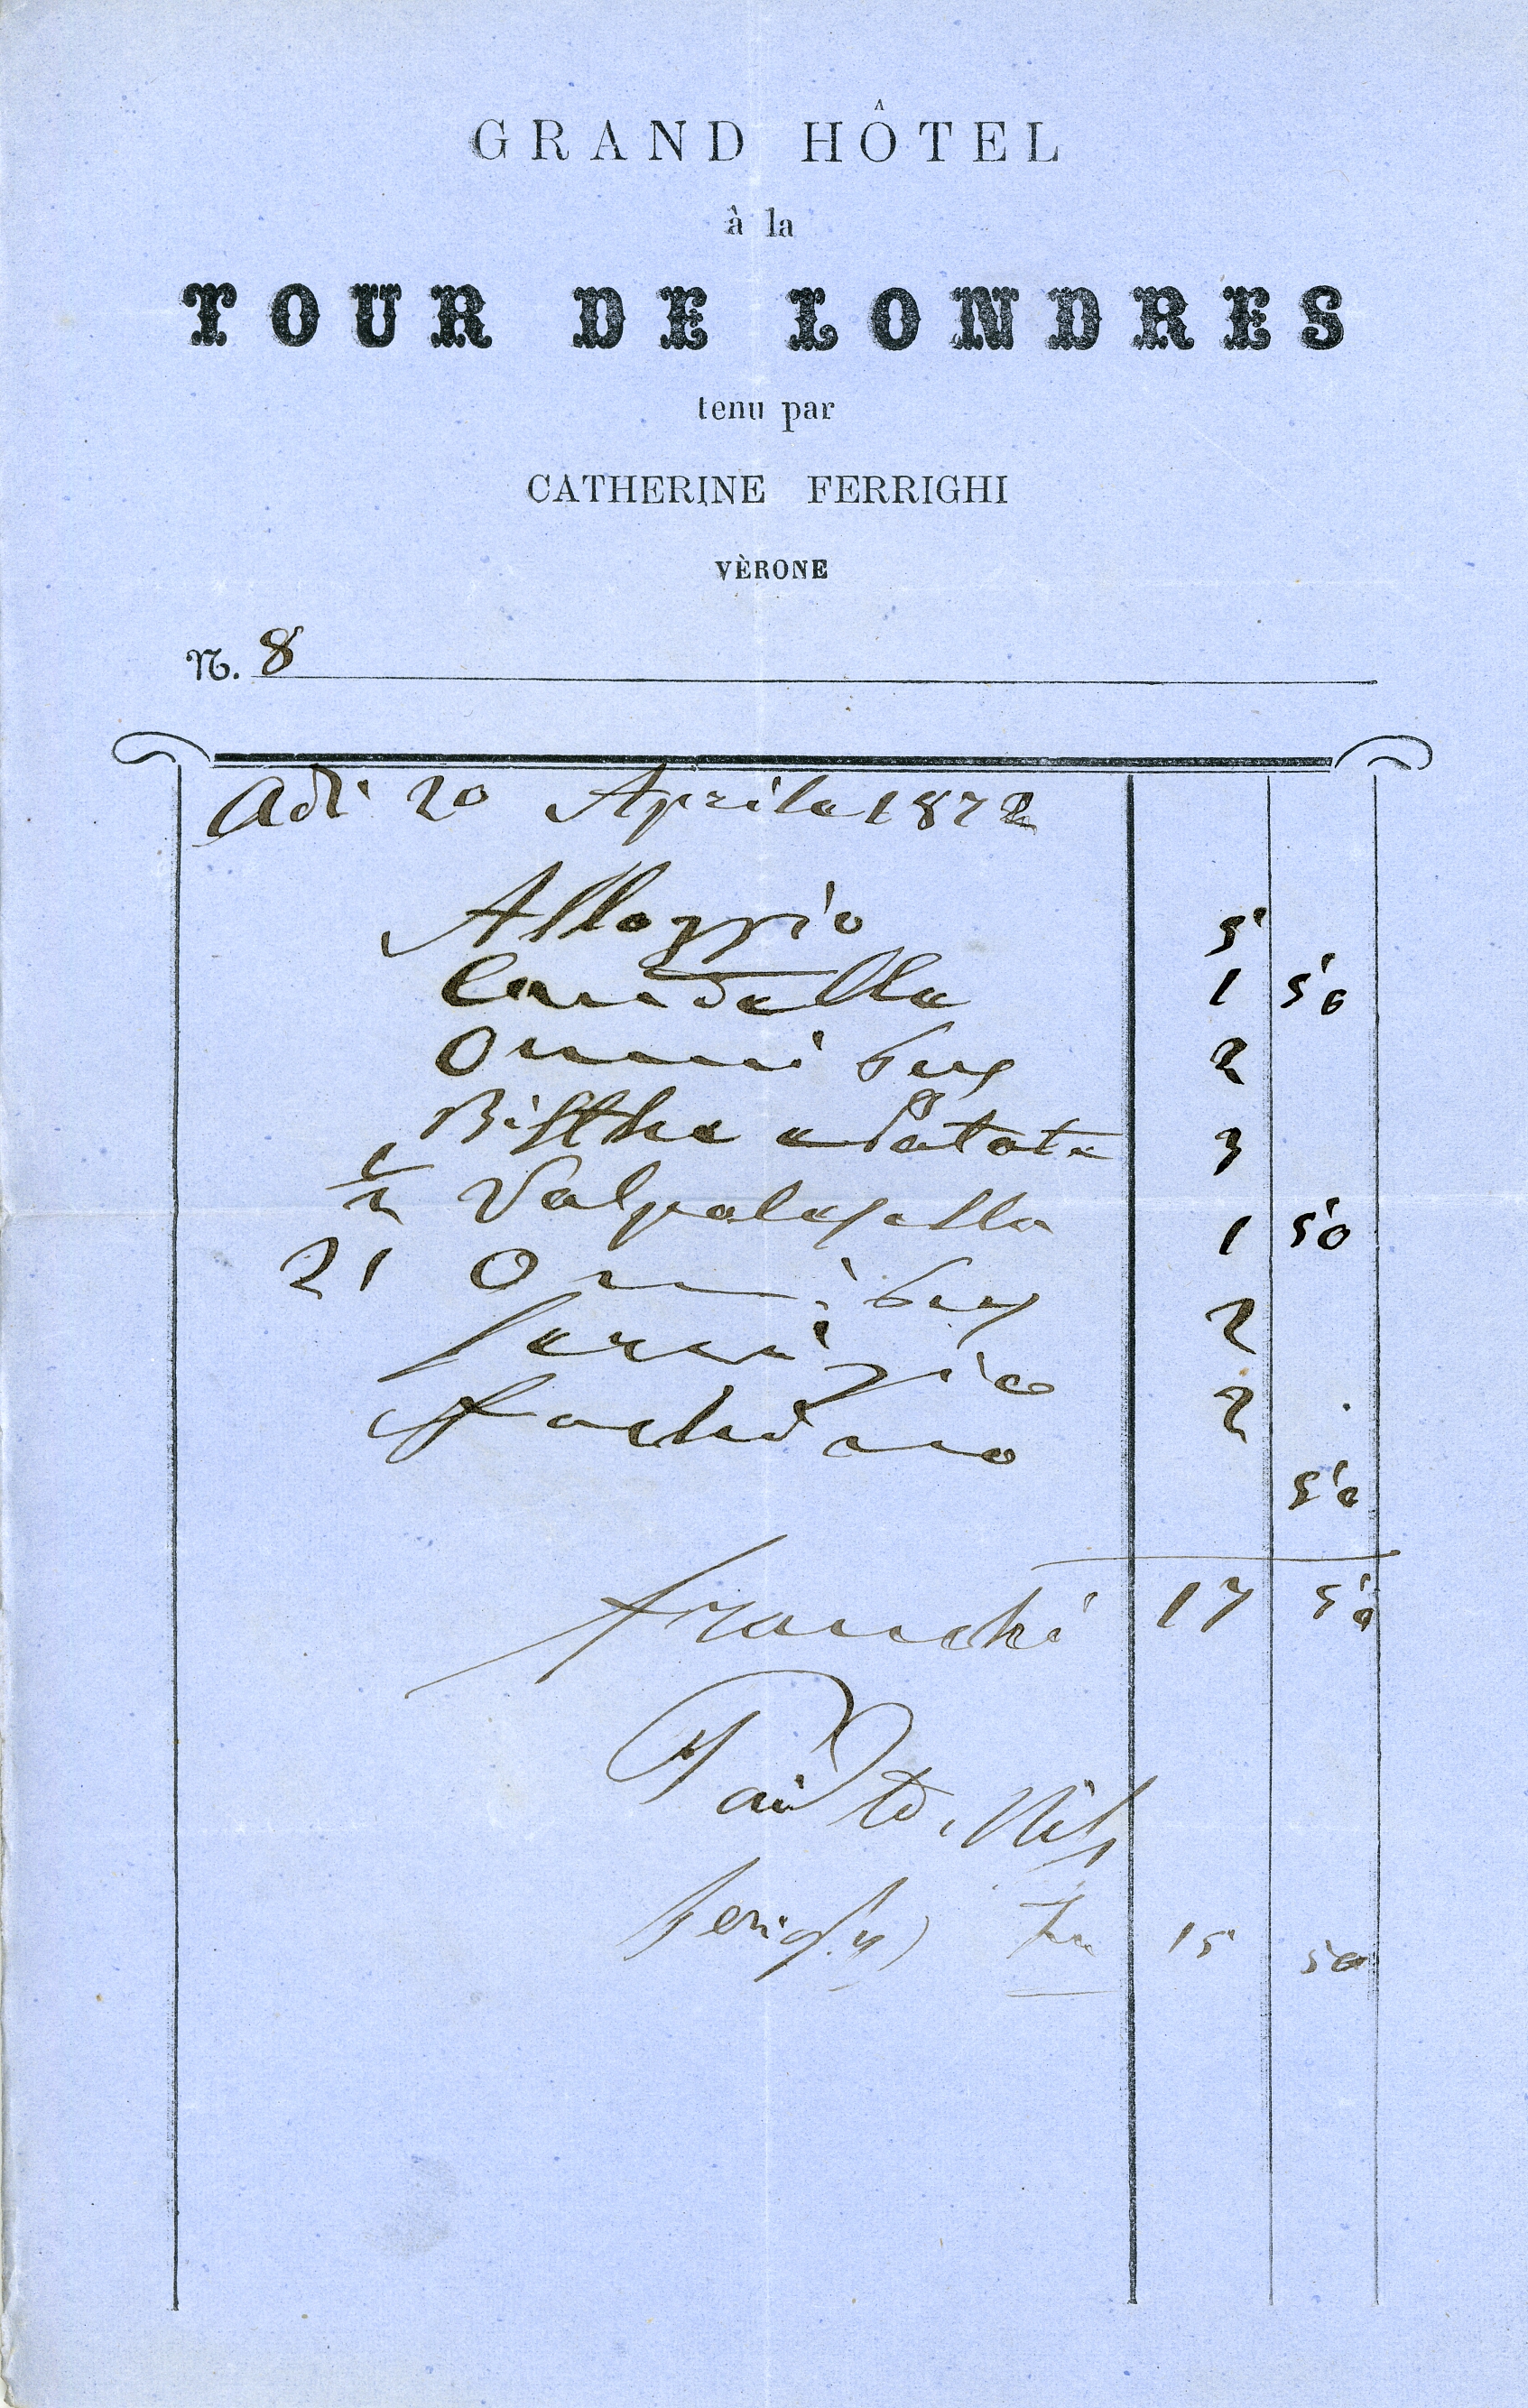 GRAND HÔTEL
à la
TOUR DE LONDRES
tenu par
CATHERINE FERRIGHI
VÈRONE
N. 8
Adi 20 Aprile 1872
Alloggio 5
Candelle 1 50
Omnibus 2
Bifthe e Patate 3
1/2 Valpolesella 1 50
21 Omnibus 2
Servizio 2
Fachino 50
franchi 17 50
Paid
15 50